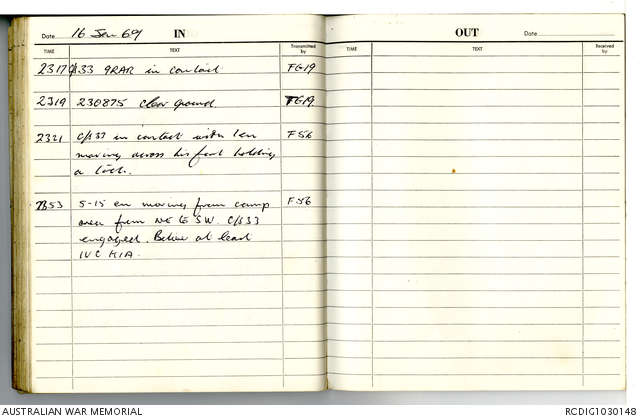 Date 16 Jan 69 IN
TIME TEXT Transmitted by
2317 C/S 33 9RAR in contact FG19
2319 230875 clear ground. FG19
2321 C/S 33 in contact with 1 en F56
moving across his front holding
a torch.
2353 5-15 en moving from camp F56
area from NE to SW. C/S 33
engaged. Believe at least
1 VC KIA.
OUT Date
TIME TEXT Received by
AUSTRALIAN WAR MEMORIAL RCDIG1030148